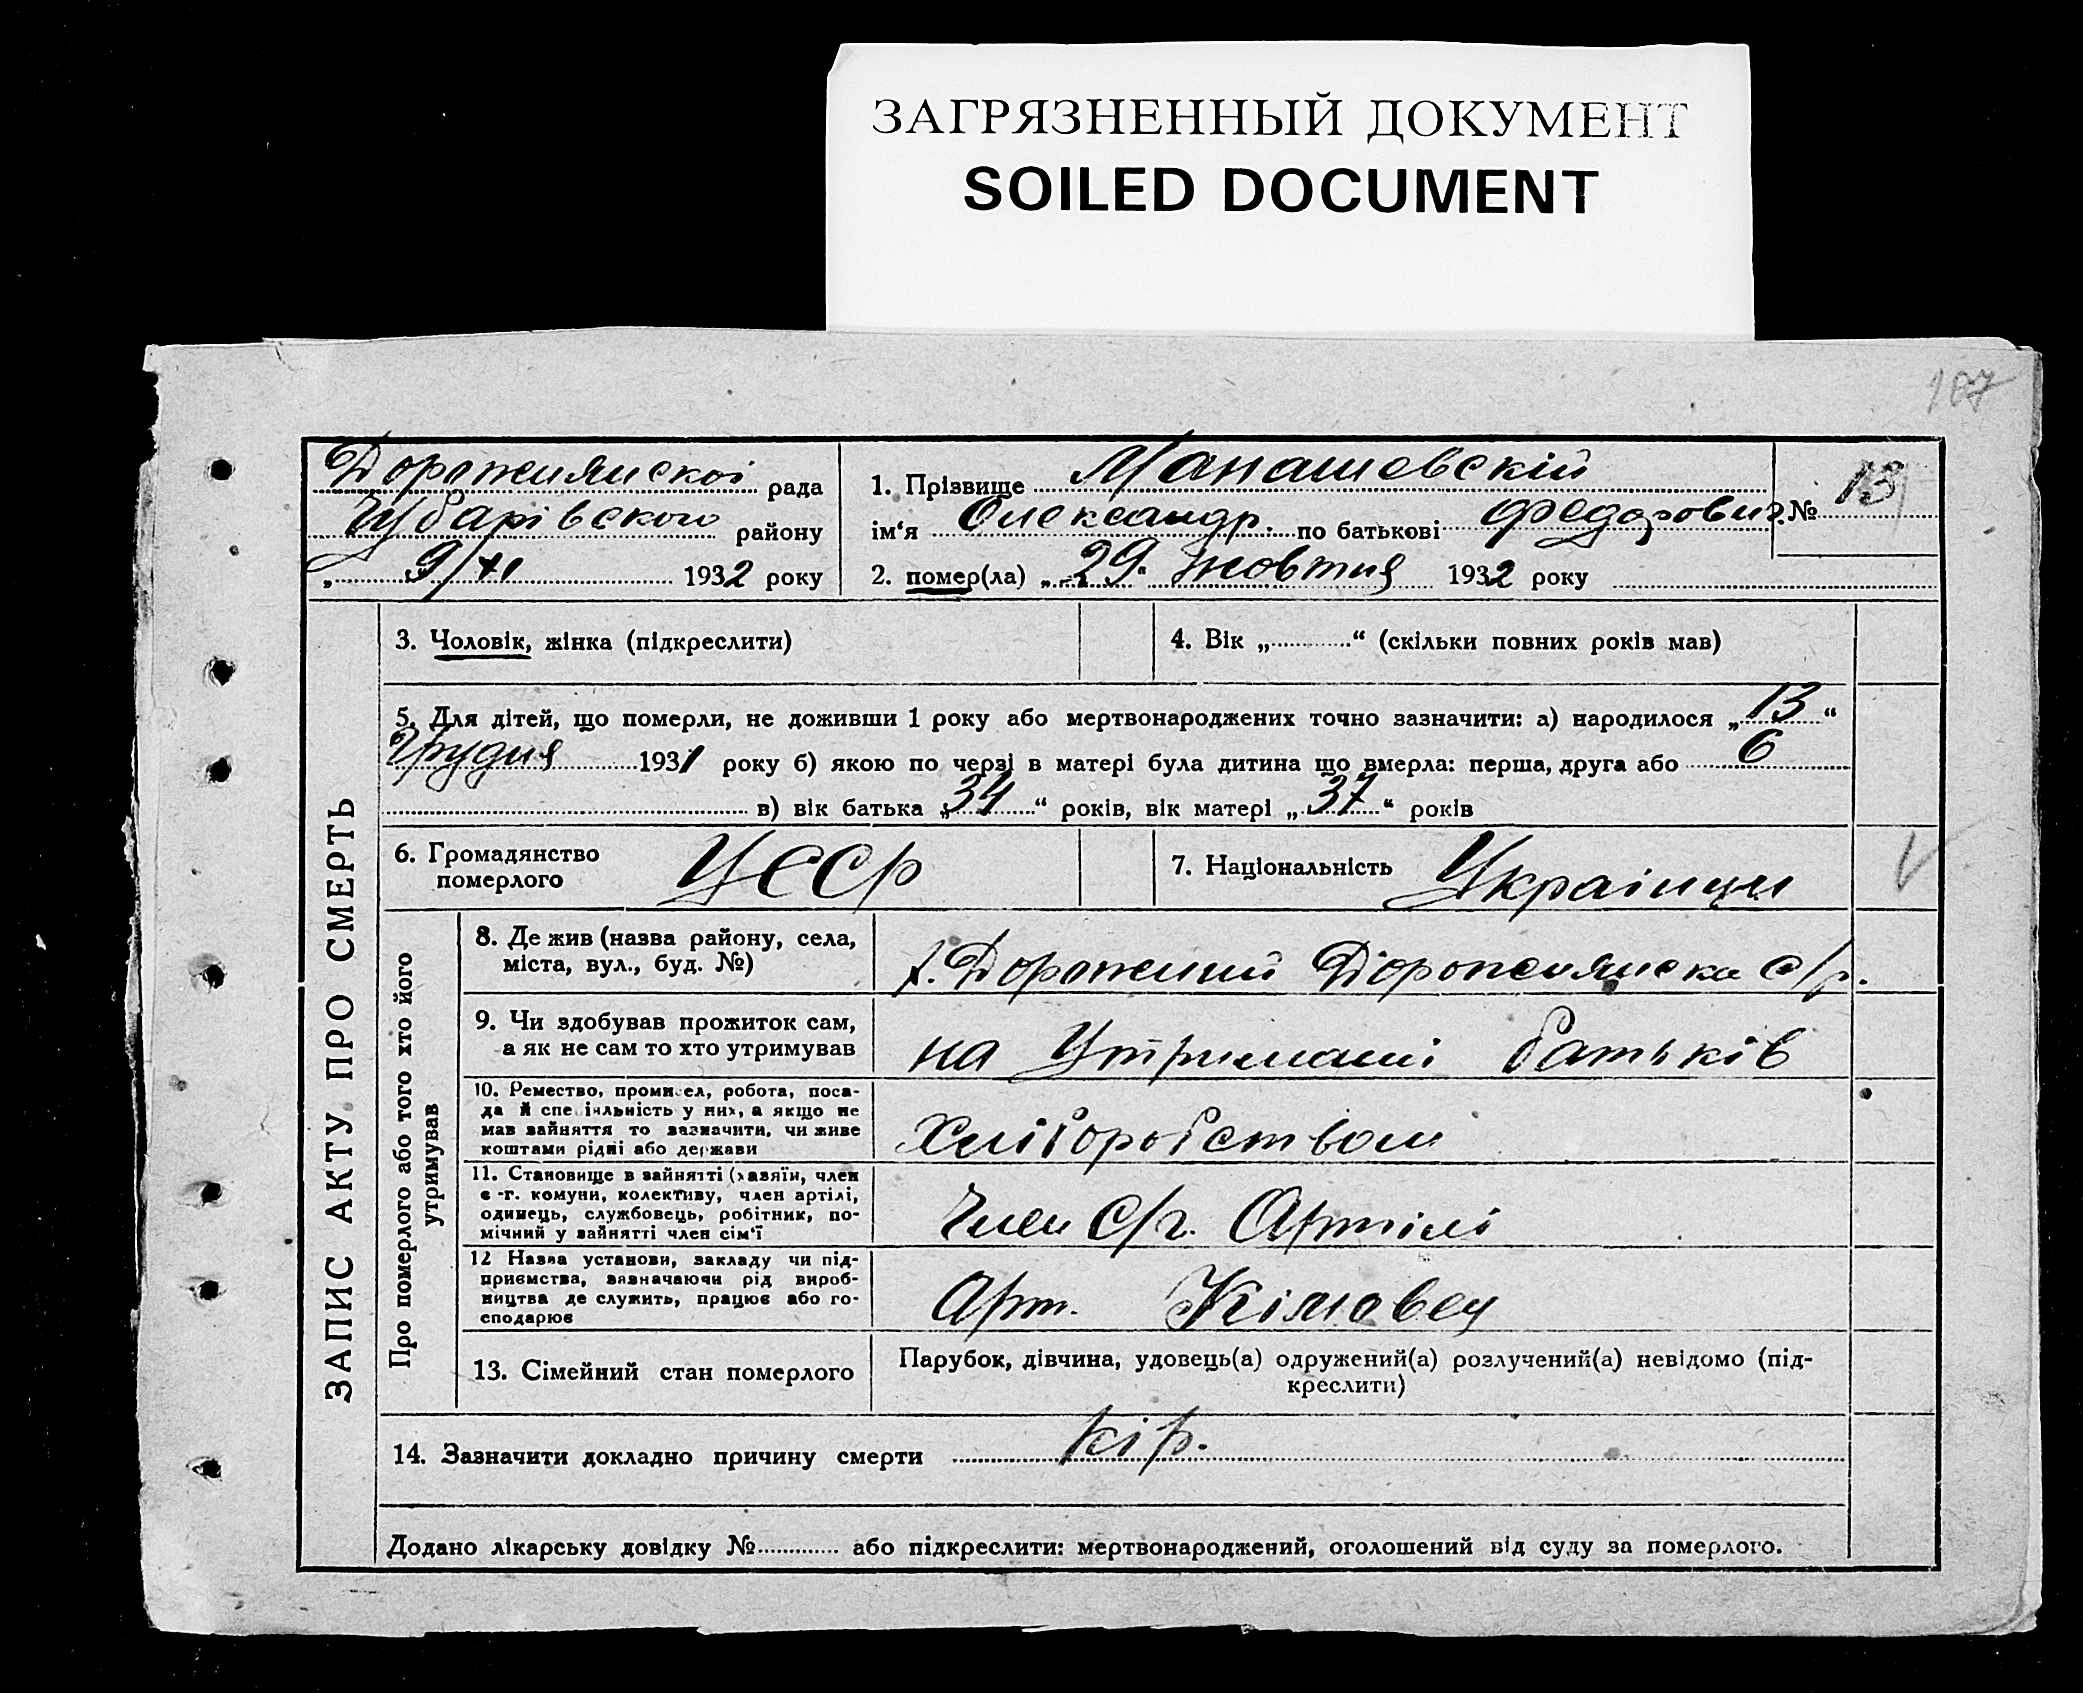 ЗАГРЯЗНЕННЫЙ ДОКУМЕНТ
SOILED DOCUMENT
187
Дорожнянскої рада
Чубарівського району
„ 9/XI 1932 року
1. Прізвище Манашевскій
ім‘я Олександр. по батькові Федорович. № 13
2. помер(ла) „ 29 “ жовтня 1932 року
ЗАПИС АКТУ ПРО СМЕРТЬ
3. Чоловік, жінка (підкреслити)
4. Вік „ “ (скільки повних років мав)
5. Для дітей, що померли, не доживши 1 року або мертвонароджених точно зазначити: а) народилося „ 13 “
Грудня 1931 року б) якою по черзі в матері була дитина що вмерла: перша, друга або 6
в) вік батька „ 34 “ років, вік матері „ 37 “ років
6. Громадянство
померлого
УССР
7. Національність Українци
Про померлого або того хто його
утримував
8. Де жив (назва району, села,
міста, вул., буд. №)
Дорожний Дорожнянска с/р.
9. Чи здобував прожиток сам,
а як не сам то хто утримував
на Утриманні батьків
10. Ремество, промисел, робота, поса-
да й спеціяльність у них, а якщо не
мав зайняття то зазначити, чи живе
коштами рідні або держави
Хліборобством
11. Становище в зайнятті (хазяїн, член
с.-г. комуни, колективу, член артілі,
одинець, службовець, робітник, по-
мічний у зайнятті член сім‘ї
Член С/г. Артілі
12 Назва установи, закладу чи під-
приємства, зазначаючи рід вироб-
ництва де служить, працює або го-
сподарює
Арт.
13. Сімейний стан померлого
Парубок, дівчина, удовець(а) одружений(а) розлучений(а) невідомо (під-
креслити)
14. Зазначити докладно причину смерти кір.
Додано лікарську довідку № або підкреслити: мертвонароджений, оголошений від суду за померлого.